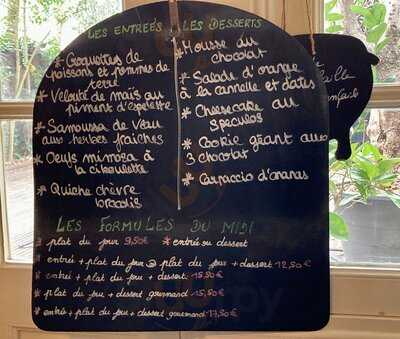 LES ENTRÉES LES DESSERTS
* Croquettes de
poissons et pommes de
terre
* Velouté de maïs au
piment d'espelette
* Samoussa de veau
aux herbes fraîches
* Oeufs mimosa à
la ciboulette
* Quiche chèvre
brocolis
* Mousse au
chocolat
* Salade d'orange
à la cannelle et dates
* Cheesecake au
speculos
* Cookie géant aux
3 chocolat
* Carpaccio d'ananas
LES FORMULES DU MIDI
* plat du jour 9,50€ * entrée ou dessert
* entrée + plat du jour ou plat du jour + dessert 12,50€
* entrée + plat du jour + dessert 15,50€
* plat du jour + dessert gourmand 15,50€
* entrée + plat du jour + dessert gourmand 17,50€